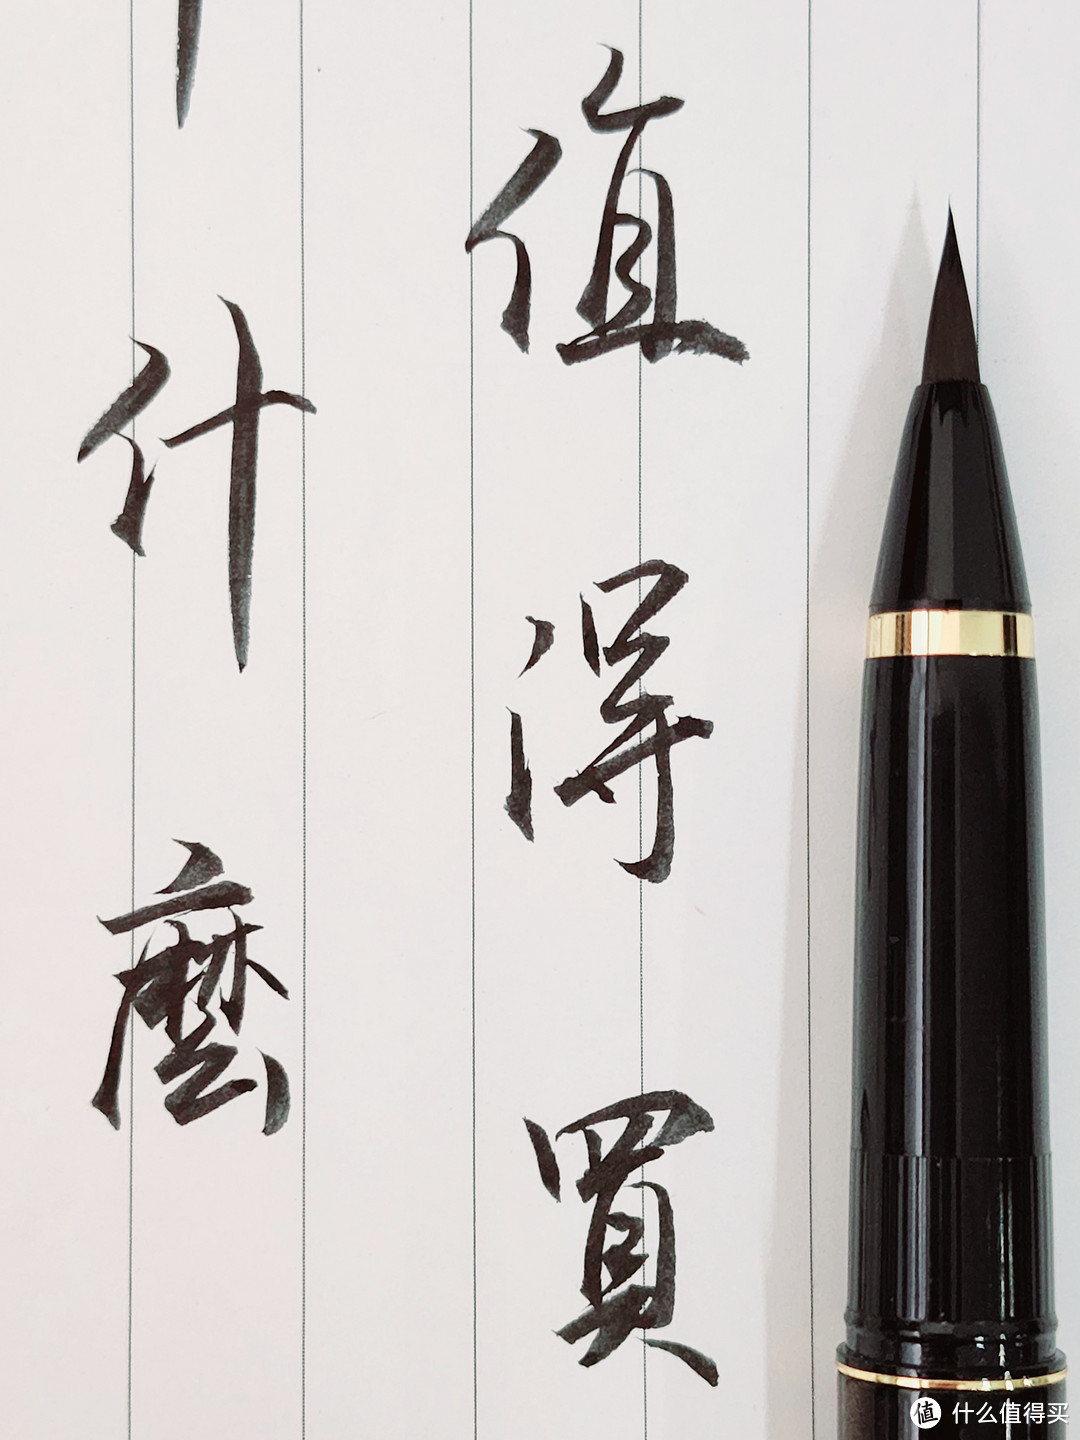 什麼
值得買
值 什么值得买